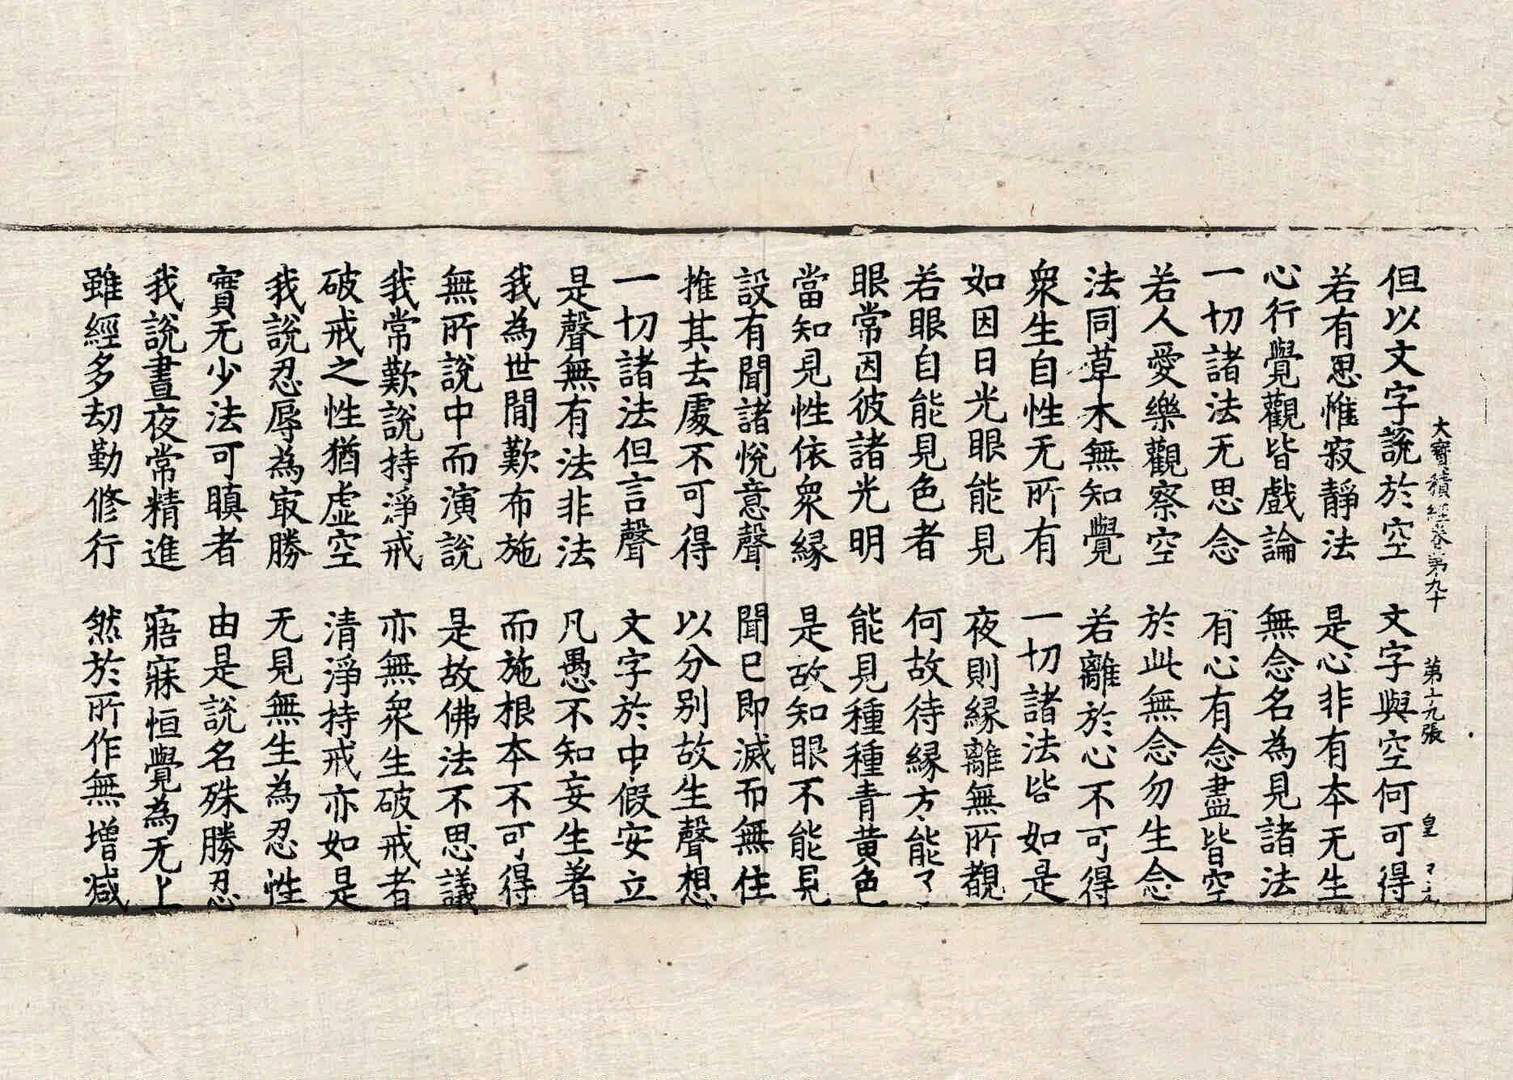 大寶積經卷第九十 第十九張 皇
但以文字說於空 文字與空何可得
若有思惟寂靜法 是心非有本无生
心行覺觀皆戲論 無念名為見諸法
一切諸法无思念 有心有念盡皆空
若人愛樂觀察空 於此無念勿生念
法同草木無知覺 若離於心不可得
衆生自性无所有 一切諸法皆如是
如因日光眼能見 夜則緣離無所覩
若眼自能見色者 何故待緣方能了
眼常因彼諸光明 能見種種青黄色
當知見性依衆緣 是故知眼不能見
設有聞諸悅意聲 聞已即滅而無住
推其去處不可得 以分別故生聲想
一切諸法但言聲 文字於中假安立
是聲無有法非法 凡愚不知妄生著
我為世間歎布施 而施根本不可得
無所說中而演說 是故佛法不思議
我常歎說持淨戒 亦無衆生破戒者
破戒之性猶虛空 清淨持戒亦如是
我說忍辱為㝡勝 无見無生為忍性
實无少法可瞋者 由是說名殊勝忍
我說晝夜常精進 寤寐恒覺為无上
雖經多劫勤修行 然於所作無增減